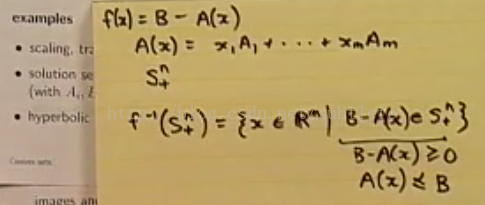 examples
• scaling, tra
• solution se
(with A_i, B
• hyperbolic
Convex sets
images an
f(x) = B - A(x)
A(x) = x₁A₁ + ··· + xₘAₘ
S₊ⁿ
f⁻¹(S₊ⁿ) = {x ∈ Rᵐ | B-A(x) ∈ S₊ⁿ}
B-A(x) ≥ 0
A(x) ≼ B